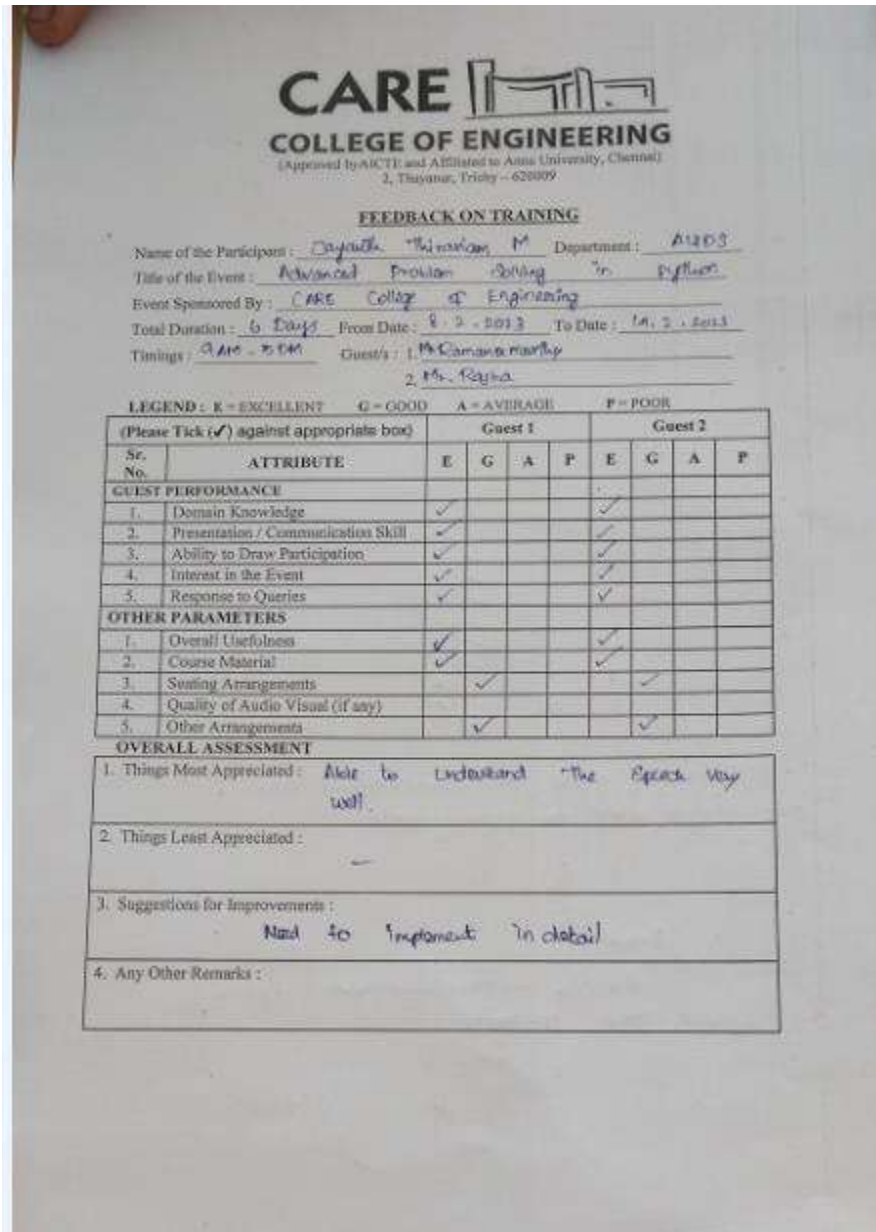 CARE
COLLEGE OF ENGINEERING
(Approved by AICTE and Affiliated to Anna University, Chennai)
2, Thayanur, Trichy – 620009
FEEDBACK ON TRAINING
Name of the Participant : M Department :
Title of the Event : Advanced Problem Solving in python
Event Sponsored By : CARE College of Engineering
Total Duration : 6 Days From Date : 8.2.2023 To Date : 2.2023
Timings : 9 AM - 5 PM Guest/s : 1. Mr
2. Mr.
LEGEND : E = EXCELLENT G = GOOD A = AVERAGE P = POOR
(Please Tick (✓) against appropriate box) Guest 1 Guest 2
Sr. No. ATTRIBUTE E G A P E G A P
GUEST PERFORMANCE
1. Domain Knowledge ✓ ✓
2. Presentation / Communication Skill ✓ ✓
3. Ability to Draw Participation ✓ ✓
4. Interest in the Event ✓ ✓
5. Response to Queries ✓ ✓
OTHER PARAMETERS
1. Overall Usefulness ✓ ✓
2. Course Material ✓ ✓
3. Seating Arrangements ✓ ✓
4. Quality of Audio Visual (if any)
5. Other Arrangements ✓ ✓
OVERALL ASSESSMENT
1. Things Most Appreciated : Able to Understand the Speech very
well.
2. Things Least Appreciated :
–
3. Suggestions for Improvements :
Need to implement in detail
4. Any Other Remarks :